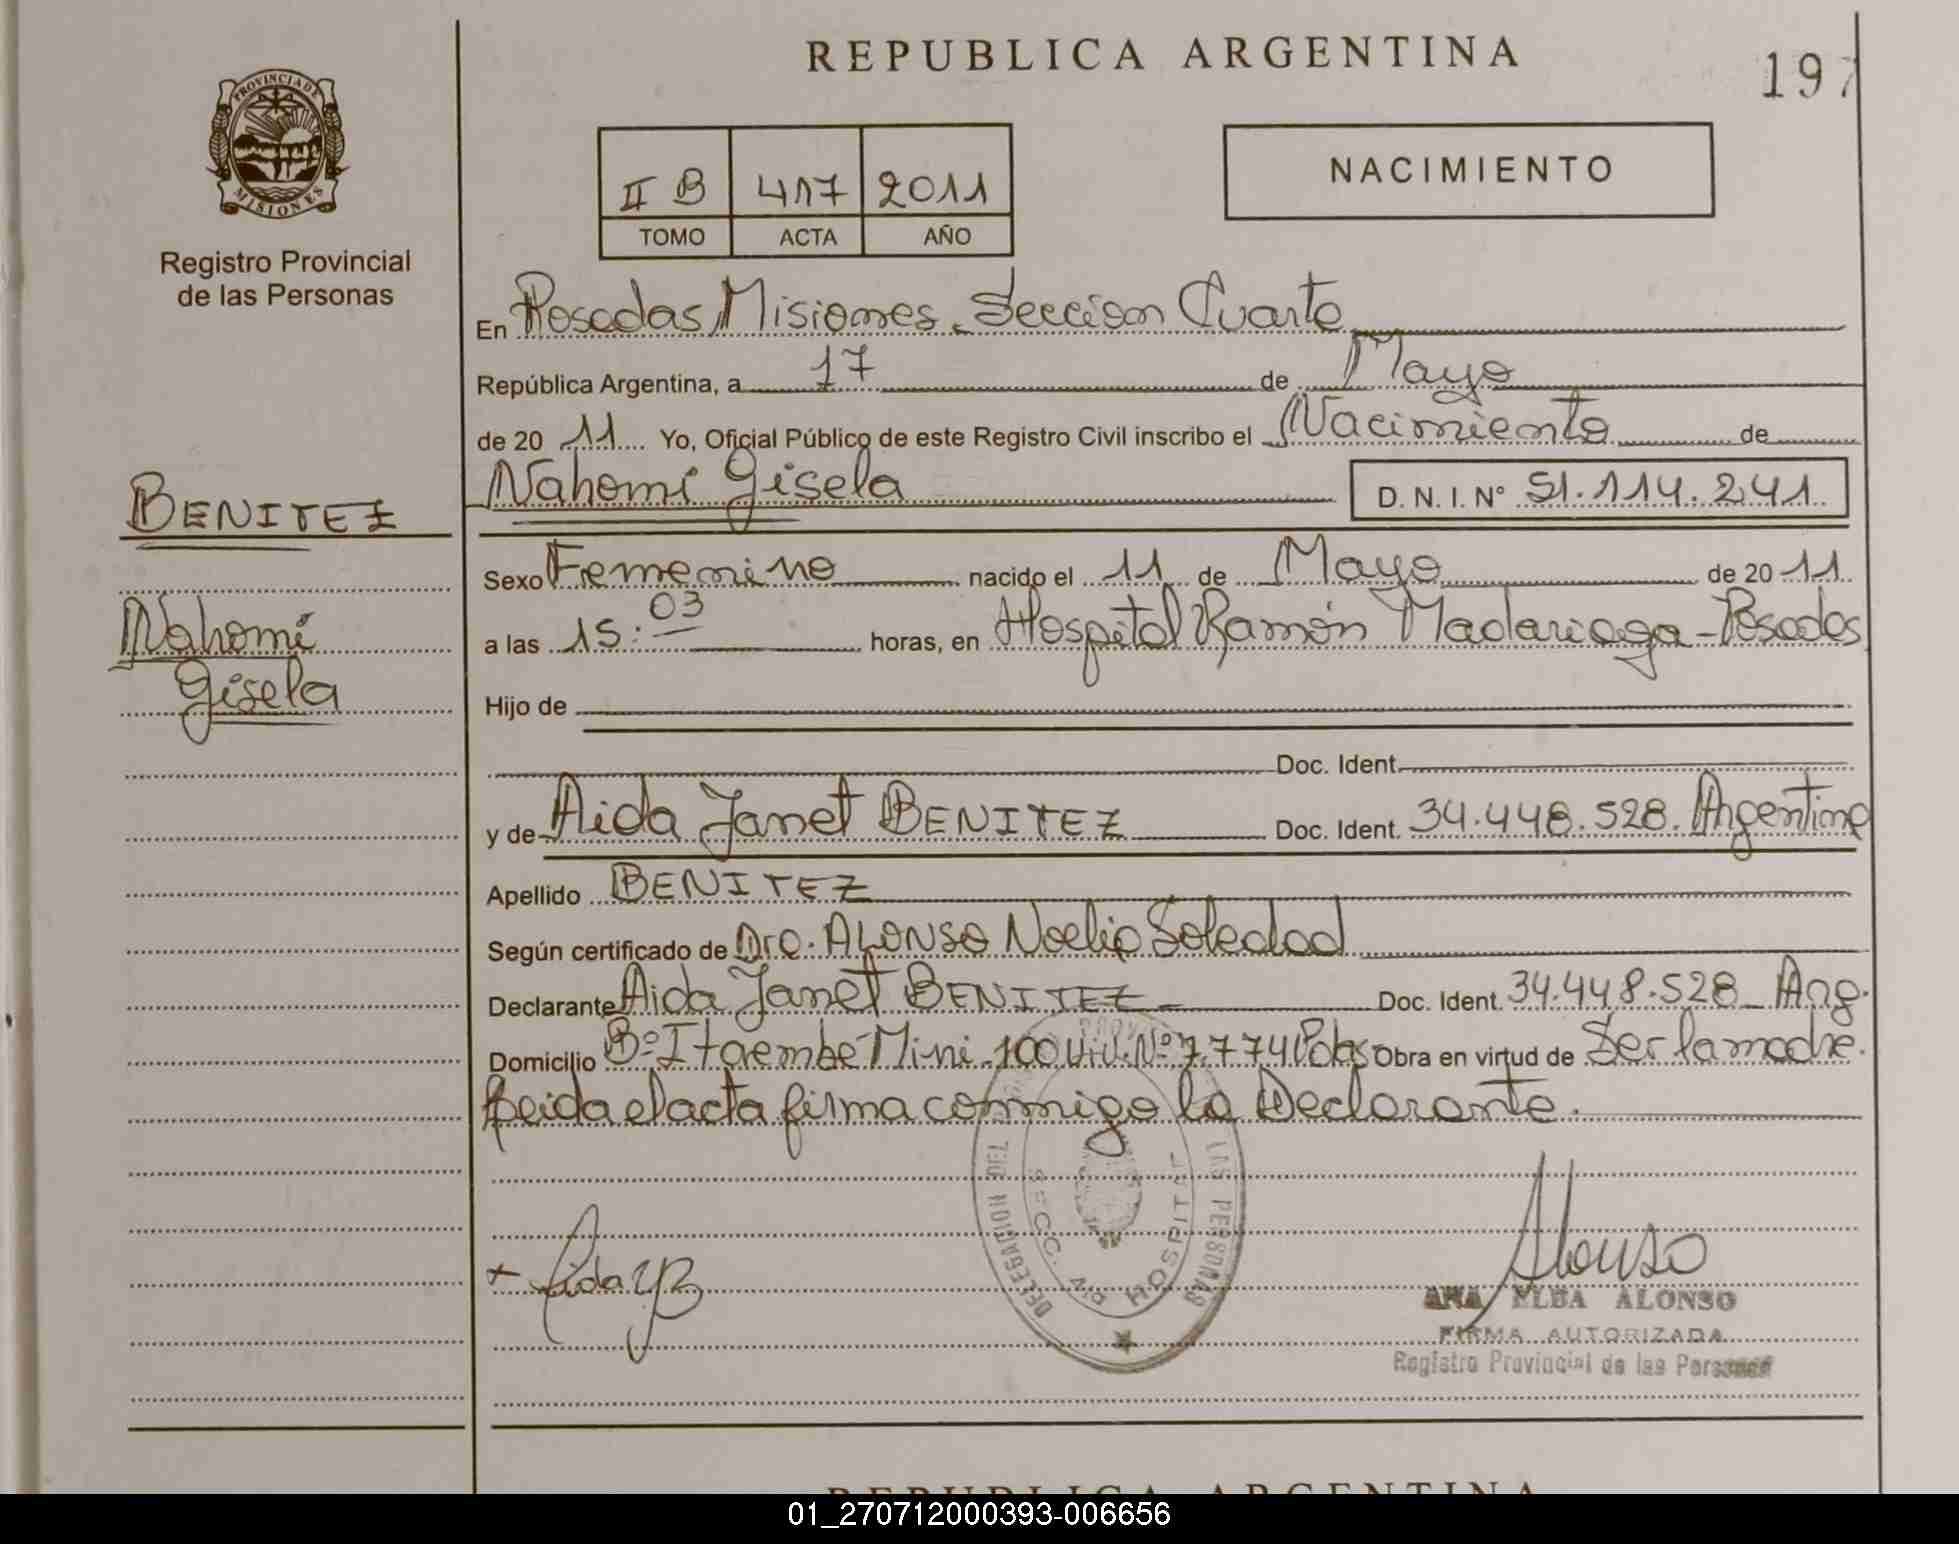 REPUBLICA ARGENTINA
197
PROVINCIA DE
MISIONES
Registro Provincial
de las Personas
II B 417 2011
TOMO ACTA AÑO
NACIMIENTO
En Posadas, Misiones. Seccion Cuarta
República Argentina, a 17 de Mayo
de 2011 Yo, Oficial Público de este Registro Civil inscribo el Nacimiento de
Nahomi Gisela D. N. I. N° 51.114.241
BENITEZ
Nahomi
Gisela
Sexo Femenino nacido el 11 de Mayo de 2011
a las 15:03 horas, en Hospital Ramón Madariaga - Posadas
Hijo de
Doc. Ident.
y de Aida Janet BENITEZ Doc. Ident. 34.448.528. Argentina
Apellido BENITEZ
Según certificado de Dra. ALONSO Noelia Soledad
Declarante Aida Janet BENITEZ Doc. Ident. 34.448.528 Arg.
Domicilio B° Itaembé Mini. 100 Viv. N° 7.774 Pdas Obra en virtud de Ser la madre.
Leida el acta firma conmigo la Declarante.
DELEGACION DEL
LAS PERSONAS
SECC. 4ta HOSPITAL
+ Aida YB
Alonso
ANA ELBA ALONSO
FIRMA AUTORIZADA
Registro Provincial de las Personas
REPUBLICA ARGENTINA
01_270712000393-006656